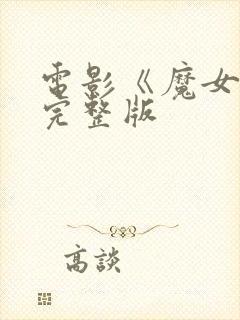 電影《魔女
完整版
高談